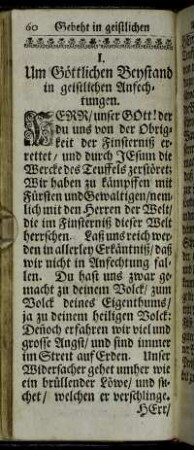 60 Gebeht in geistlichen
I.
Um Göttlichen Beystand
in geistlichen Anfech-
tungen.
HERR/ unser GOtt! der
du uns von der Obrig-
keit der Finsterniß er-
rettet/ und durch JEsum die
Wercke des Teuffels zerstöret;
Wir haben zu kämpffen mit
Fürsten und Gewaltigen/ nem-
lich mit den Herren der Welt/
die im Finsterniß dieser Welt
herrschen. Laß uns reich wer-
den in allerley Erkäntniß/ daß
wir nicht in Anfechtung fal-
len. Du hast uns zwar ge-
macht zu deinem Volck/ zum
Volck deines Eigenthums/
ja zu deinem heiligen Volck:
Deñoch erfahren wir viel und
grosse Angst/ und sind immer
im Streit auf Erden. Unser
Widersacher gehet umher wie
ein brüllender Löwe/ und su-
chet/ welchen er verschlinge.
HErr/